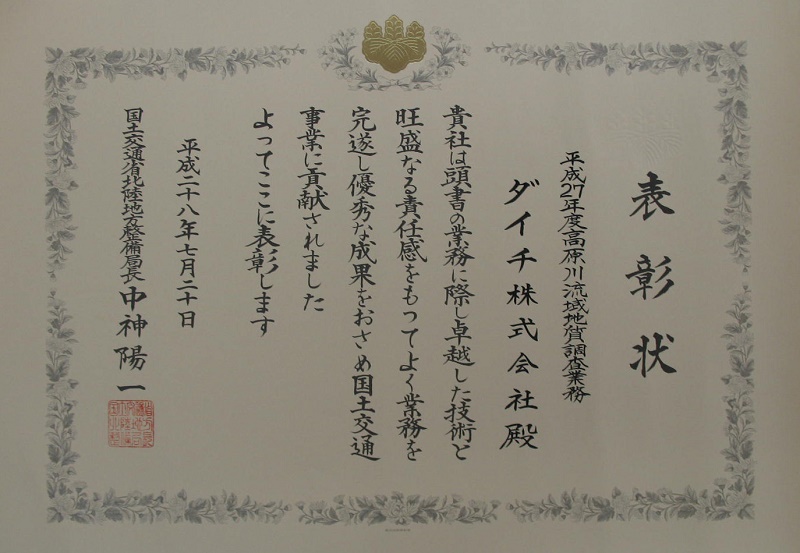 表彰状
平成27年度高原川流域地質調査業務
ダイチ株式会社殿
貴社は頭書の業務に際し卓越した技術と
旺盛なる責任感をもつてよく業務を
完遂し優秀な成果をおさめ国土交通
事業に貢献されました
よってここに表彰します
平成二十八年七月二十日
国土交通省北陸地方整備局長 中神陽一